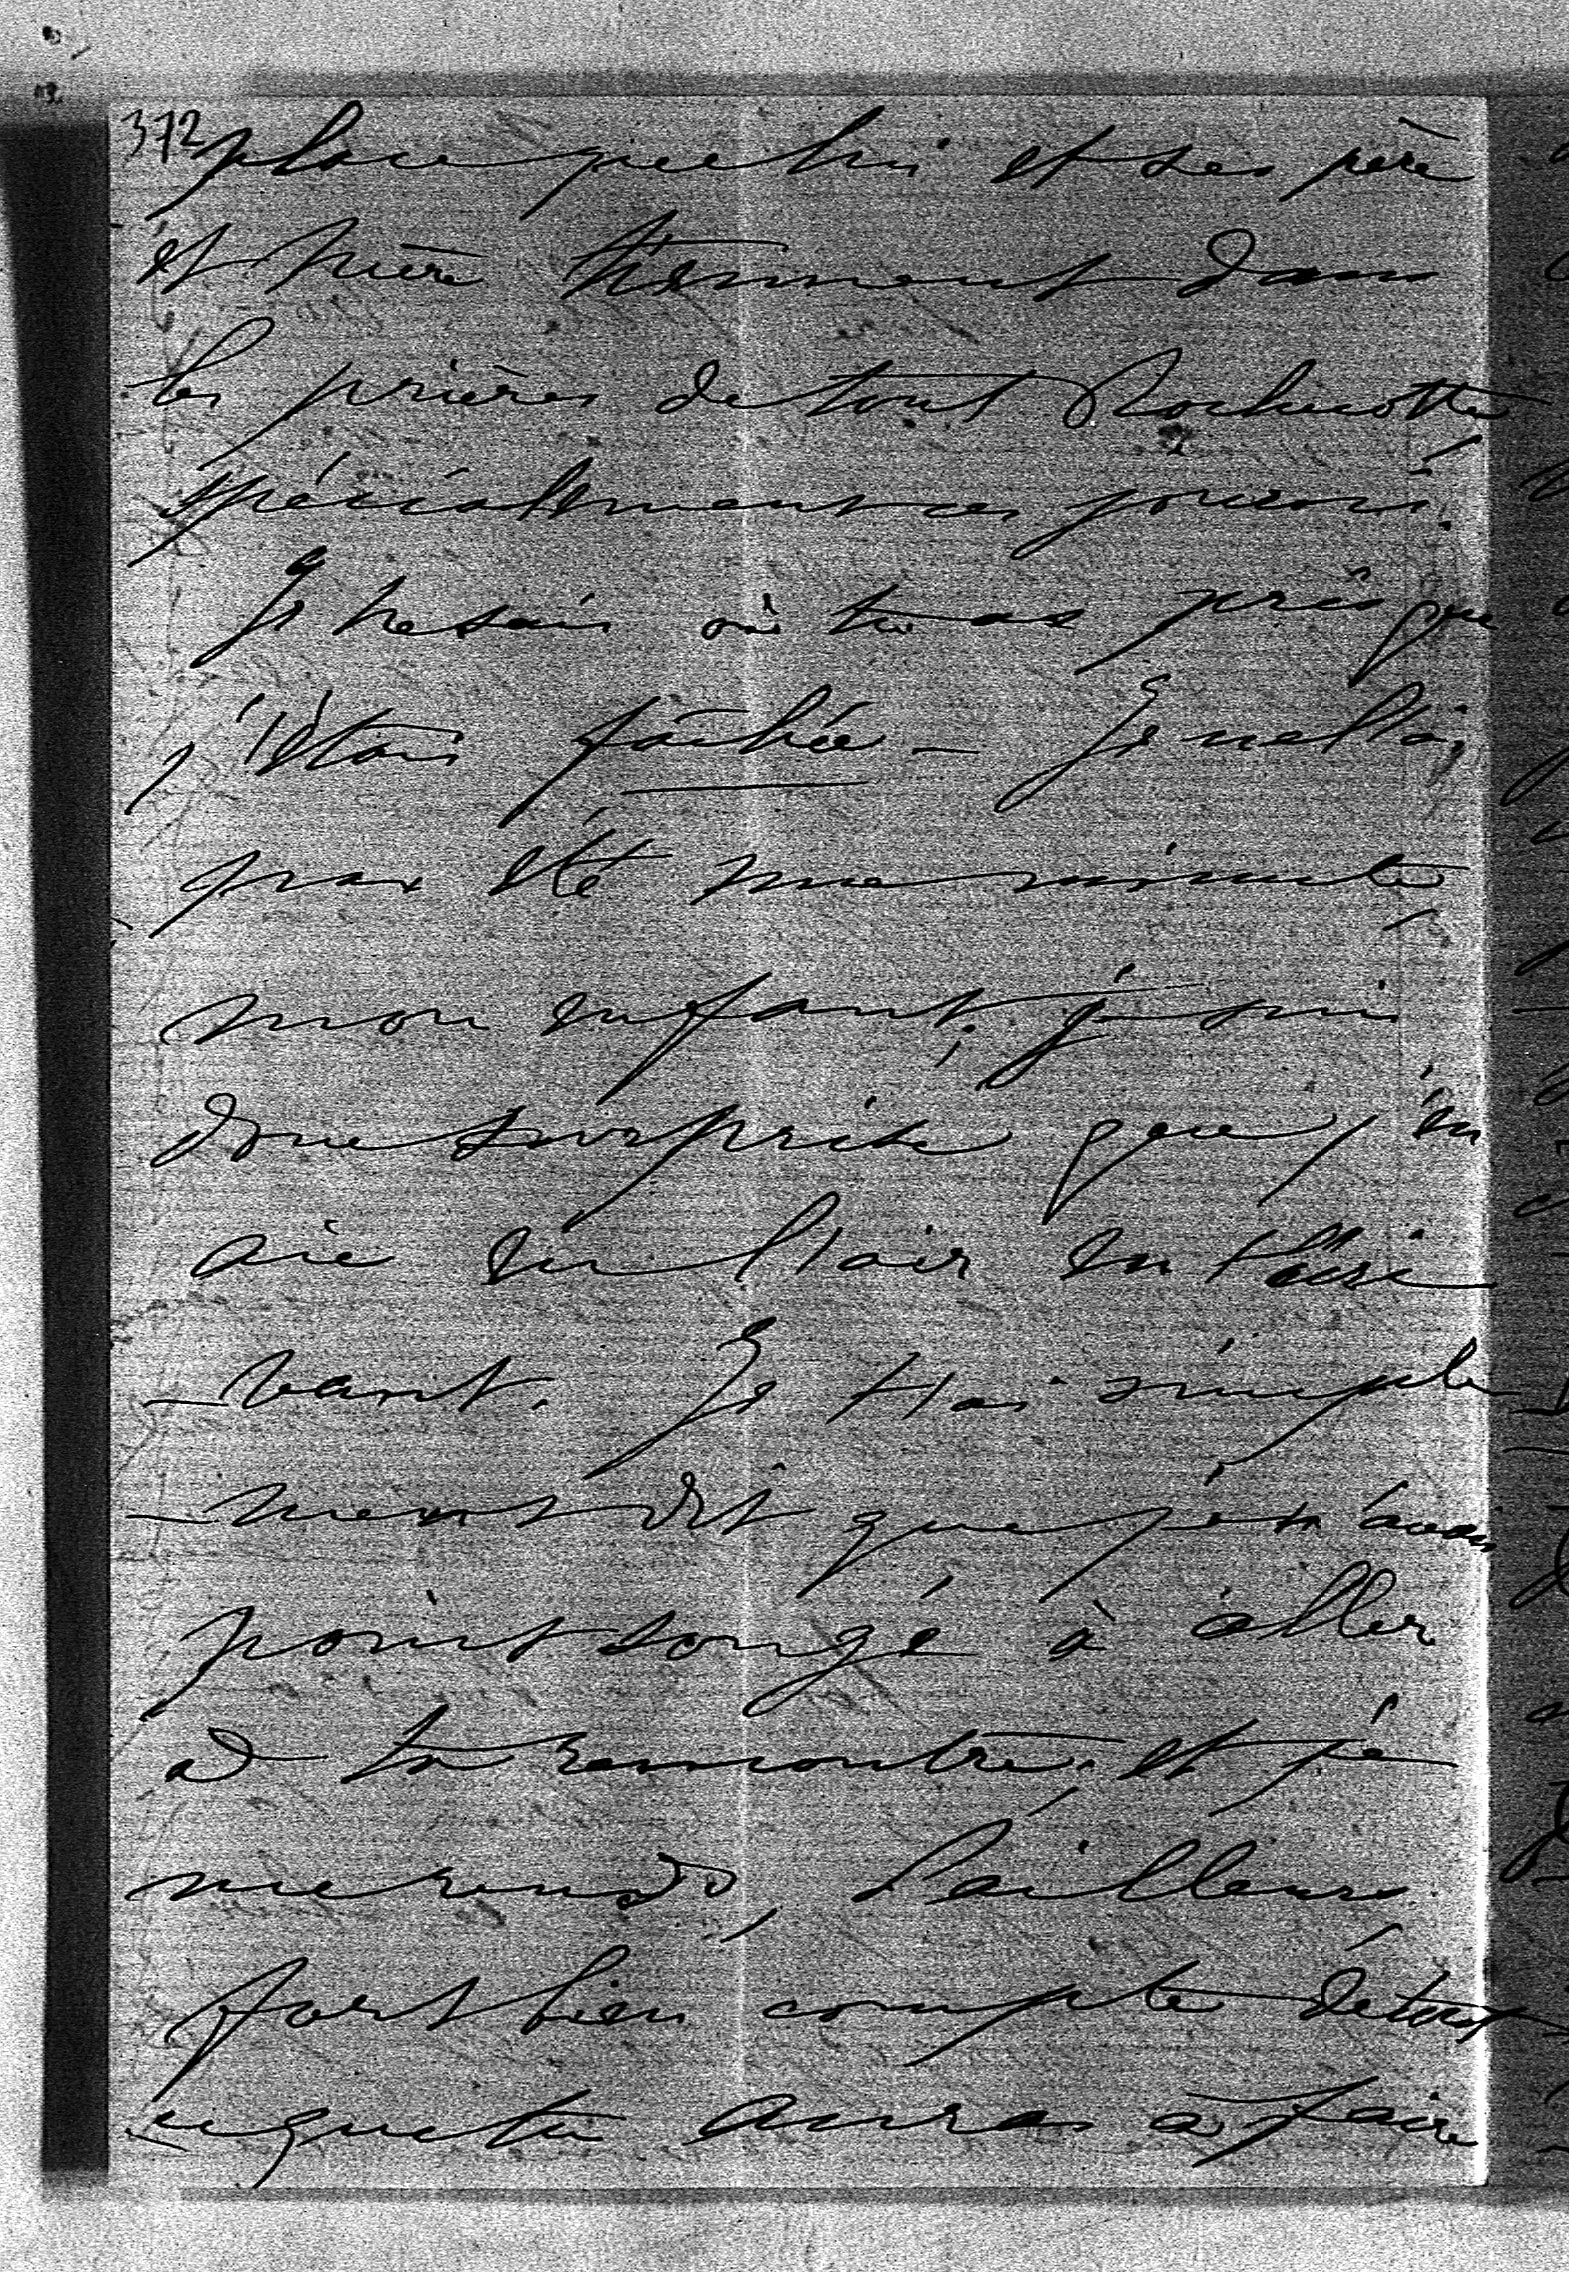 372 place que lui et ses père
et mère tiennent dans
les prières de tout Rochecotte
spécialement ces jours ci.
Je ne sais où tu as pris que
j'étais fachée – Je ne l'ai
pas été une minute
mon enfant, je suis
donc surprise que j'en
aie eu l'air en t'écri
-vant. Je t'ai simple
-ment dit que je n'avais
point songé à aller
à ta rencontre, et je
me rends, d'ailleurs
fort bien compte de tout
ce que tu auras à faire